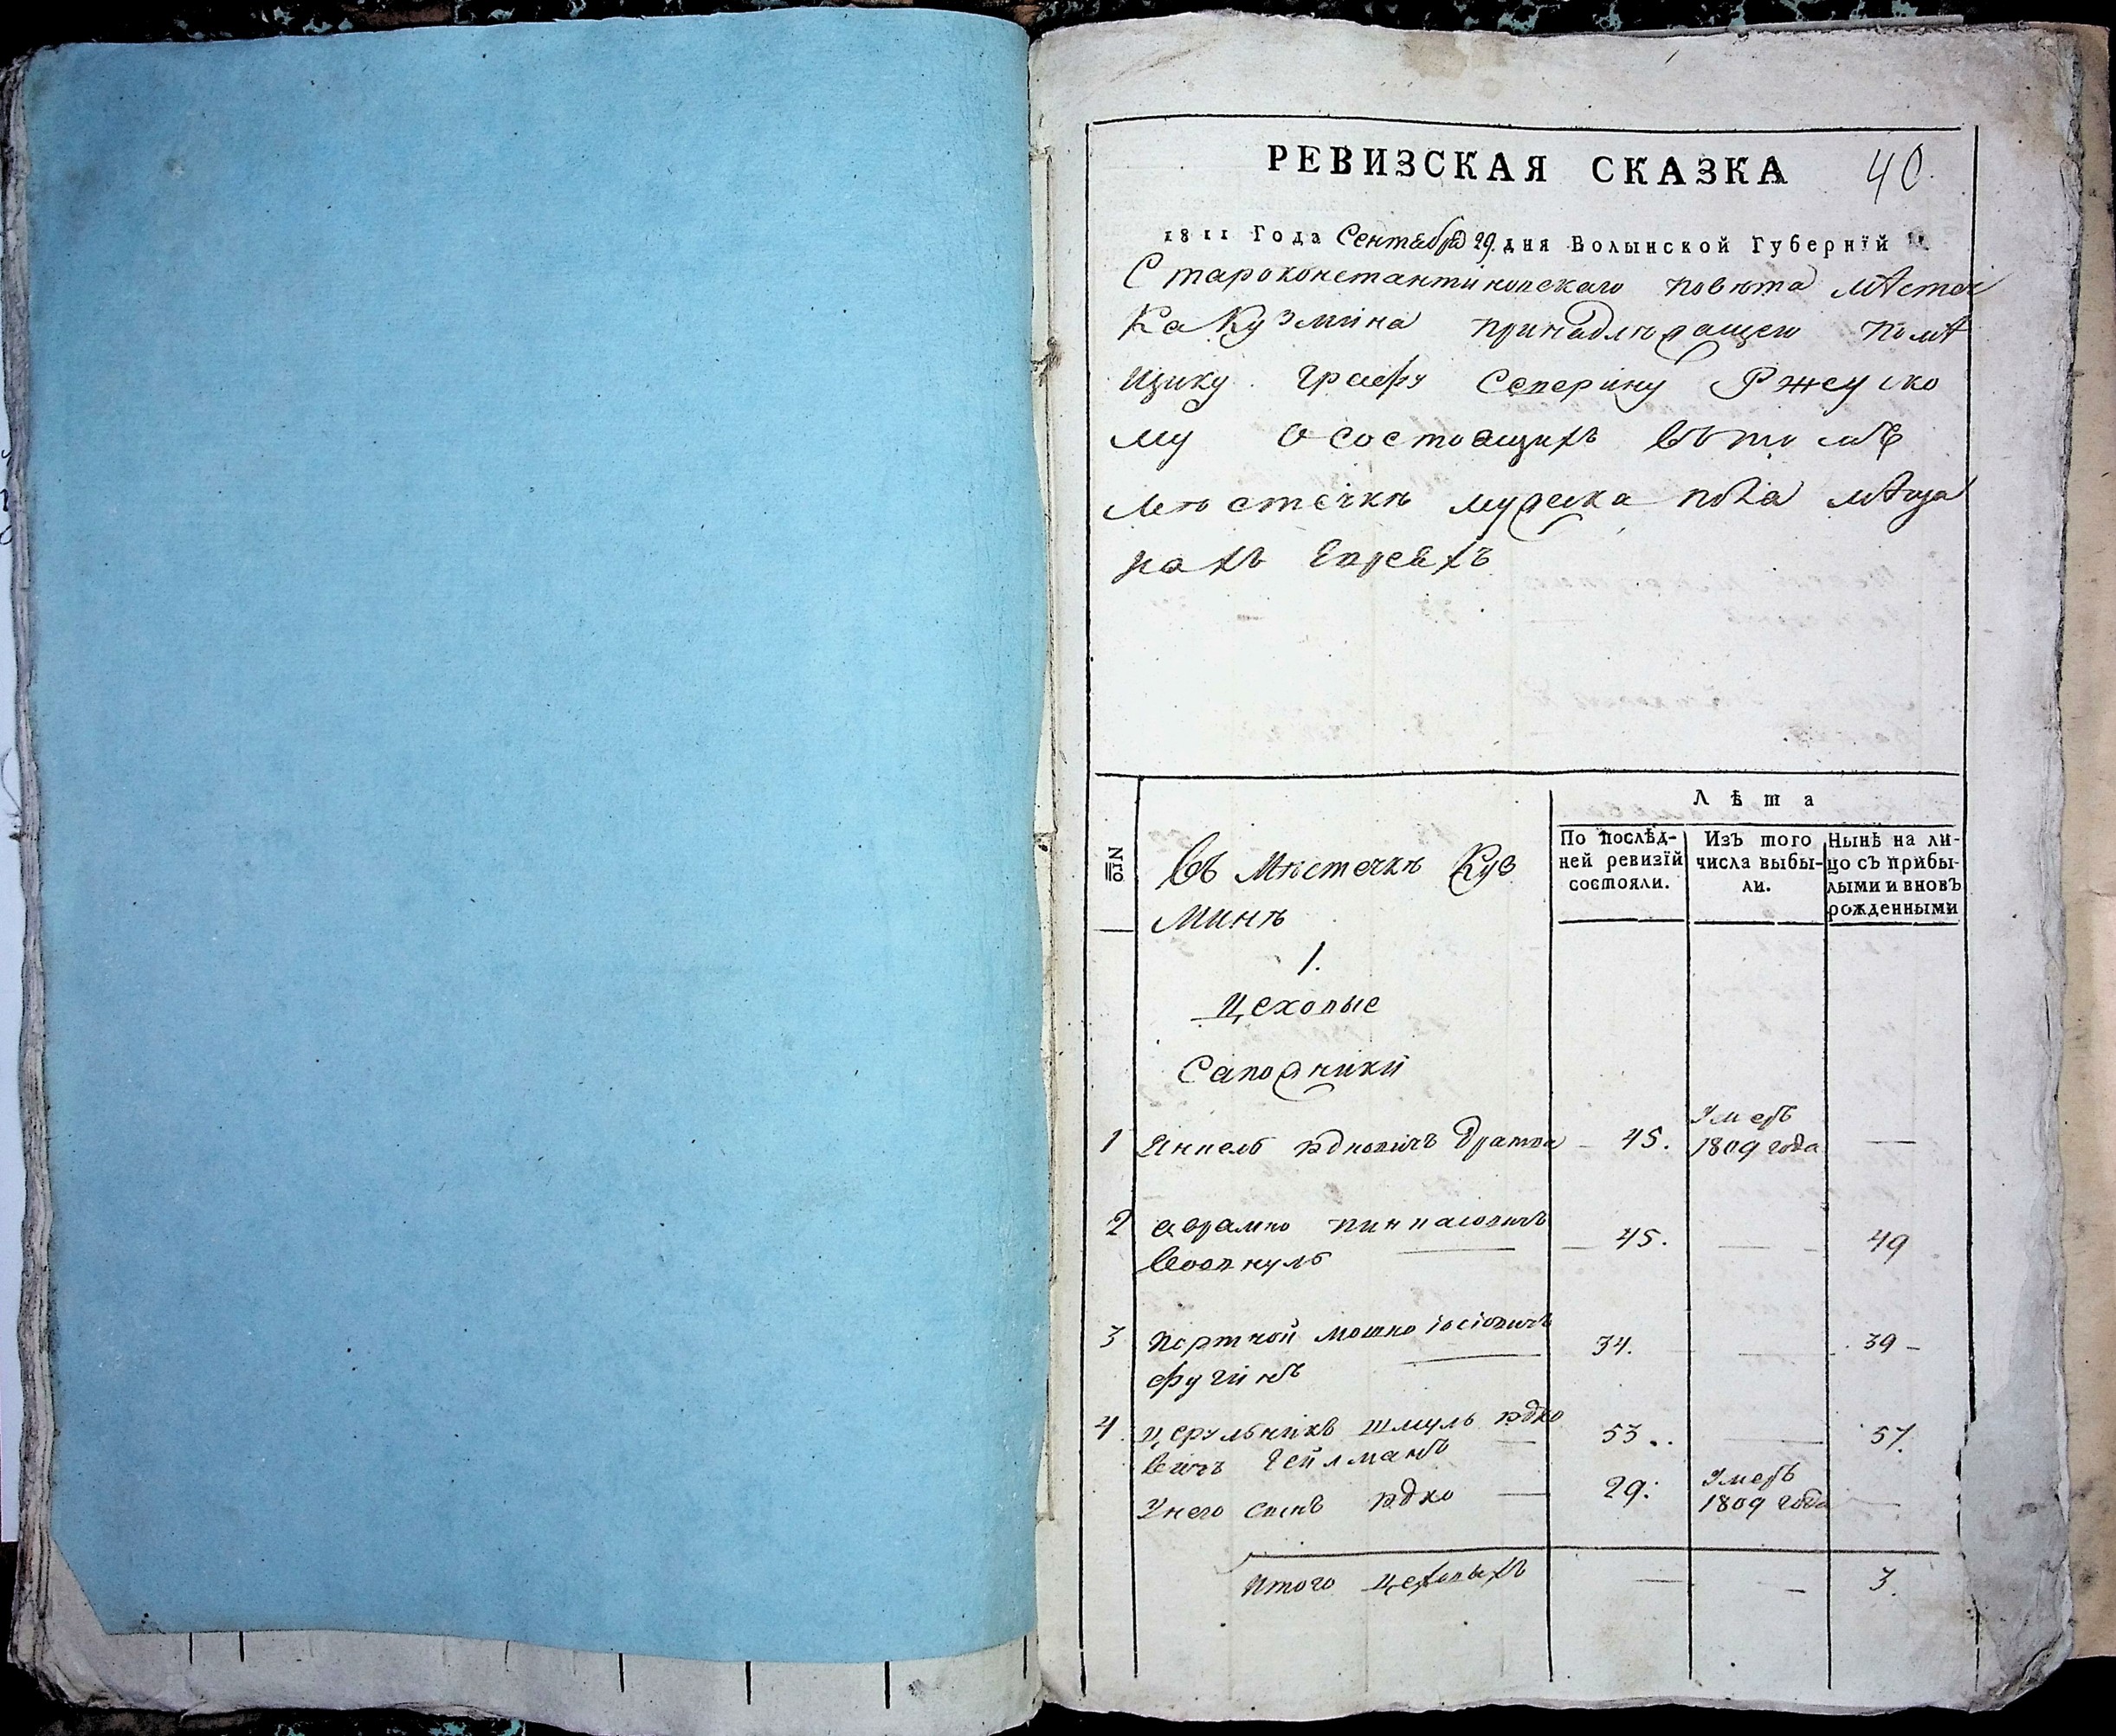 РЕВИЗСКАЯ СКАЗКА 40.
1811 Года Сентября 29. дня Волынской Губернїй
Староконстантиновскаго повѣта мѣстеч
ка Кузмина принадлежащего помѣ
щику Графу Северину Ржеуско
му о состоящихъ въ томъ
мѣстечкѣ мужеска пола мѣща
нахъ Евреяхъ
Лѣта
No
Въ Мѣстечкѣ Куз
минѣ
По послѣд-
ней ревизїй
состояли.
Изъ того
числа выбы-
ли.
Нынѣ на ли-
цо съ прибы-
лыми и вновь
рожденными
1.
Цеховые
Сапожники
1 Янкель Юдковичъ Дратва 45. Умеръ 1809 года —
2 Аврамко Пинкасовичъ 45. — 49
3 Портной Мошко Іосіовичъ 34. — 39
4 Церульникъ Шмуль Юдко 53. — 57.
вичъ Гейлманъ
У него сынъ Юдко 29. Умеръ 1809 года —
Итого цеховыхъ — — 3.